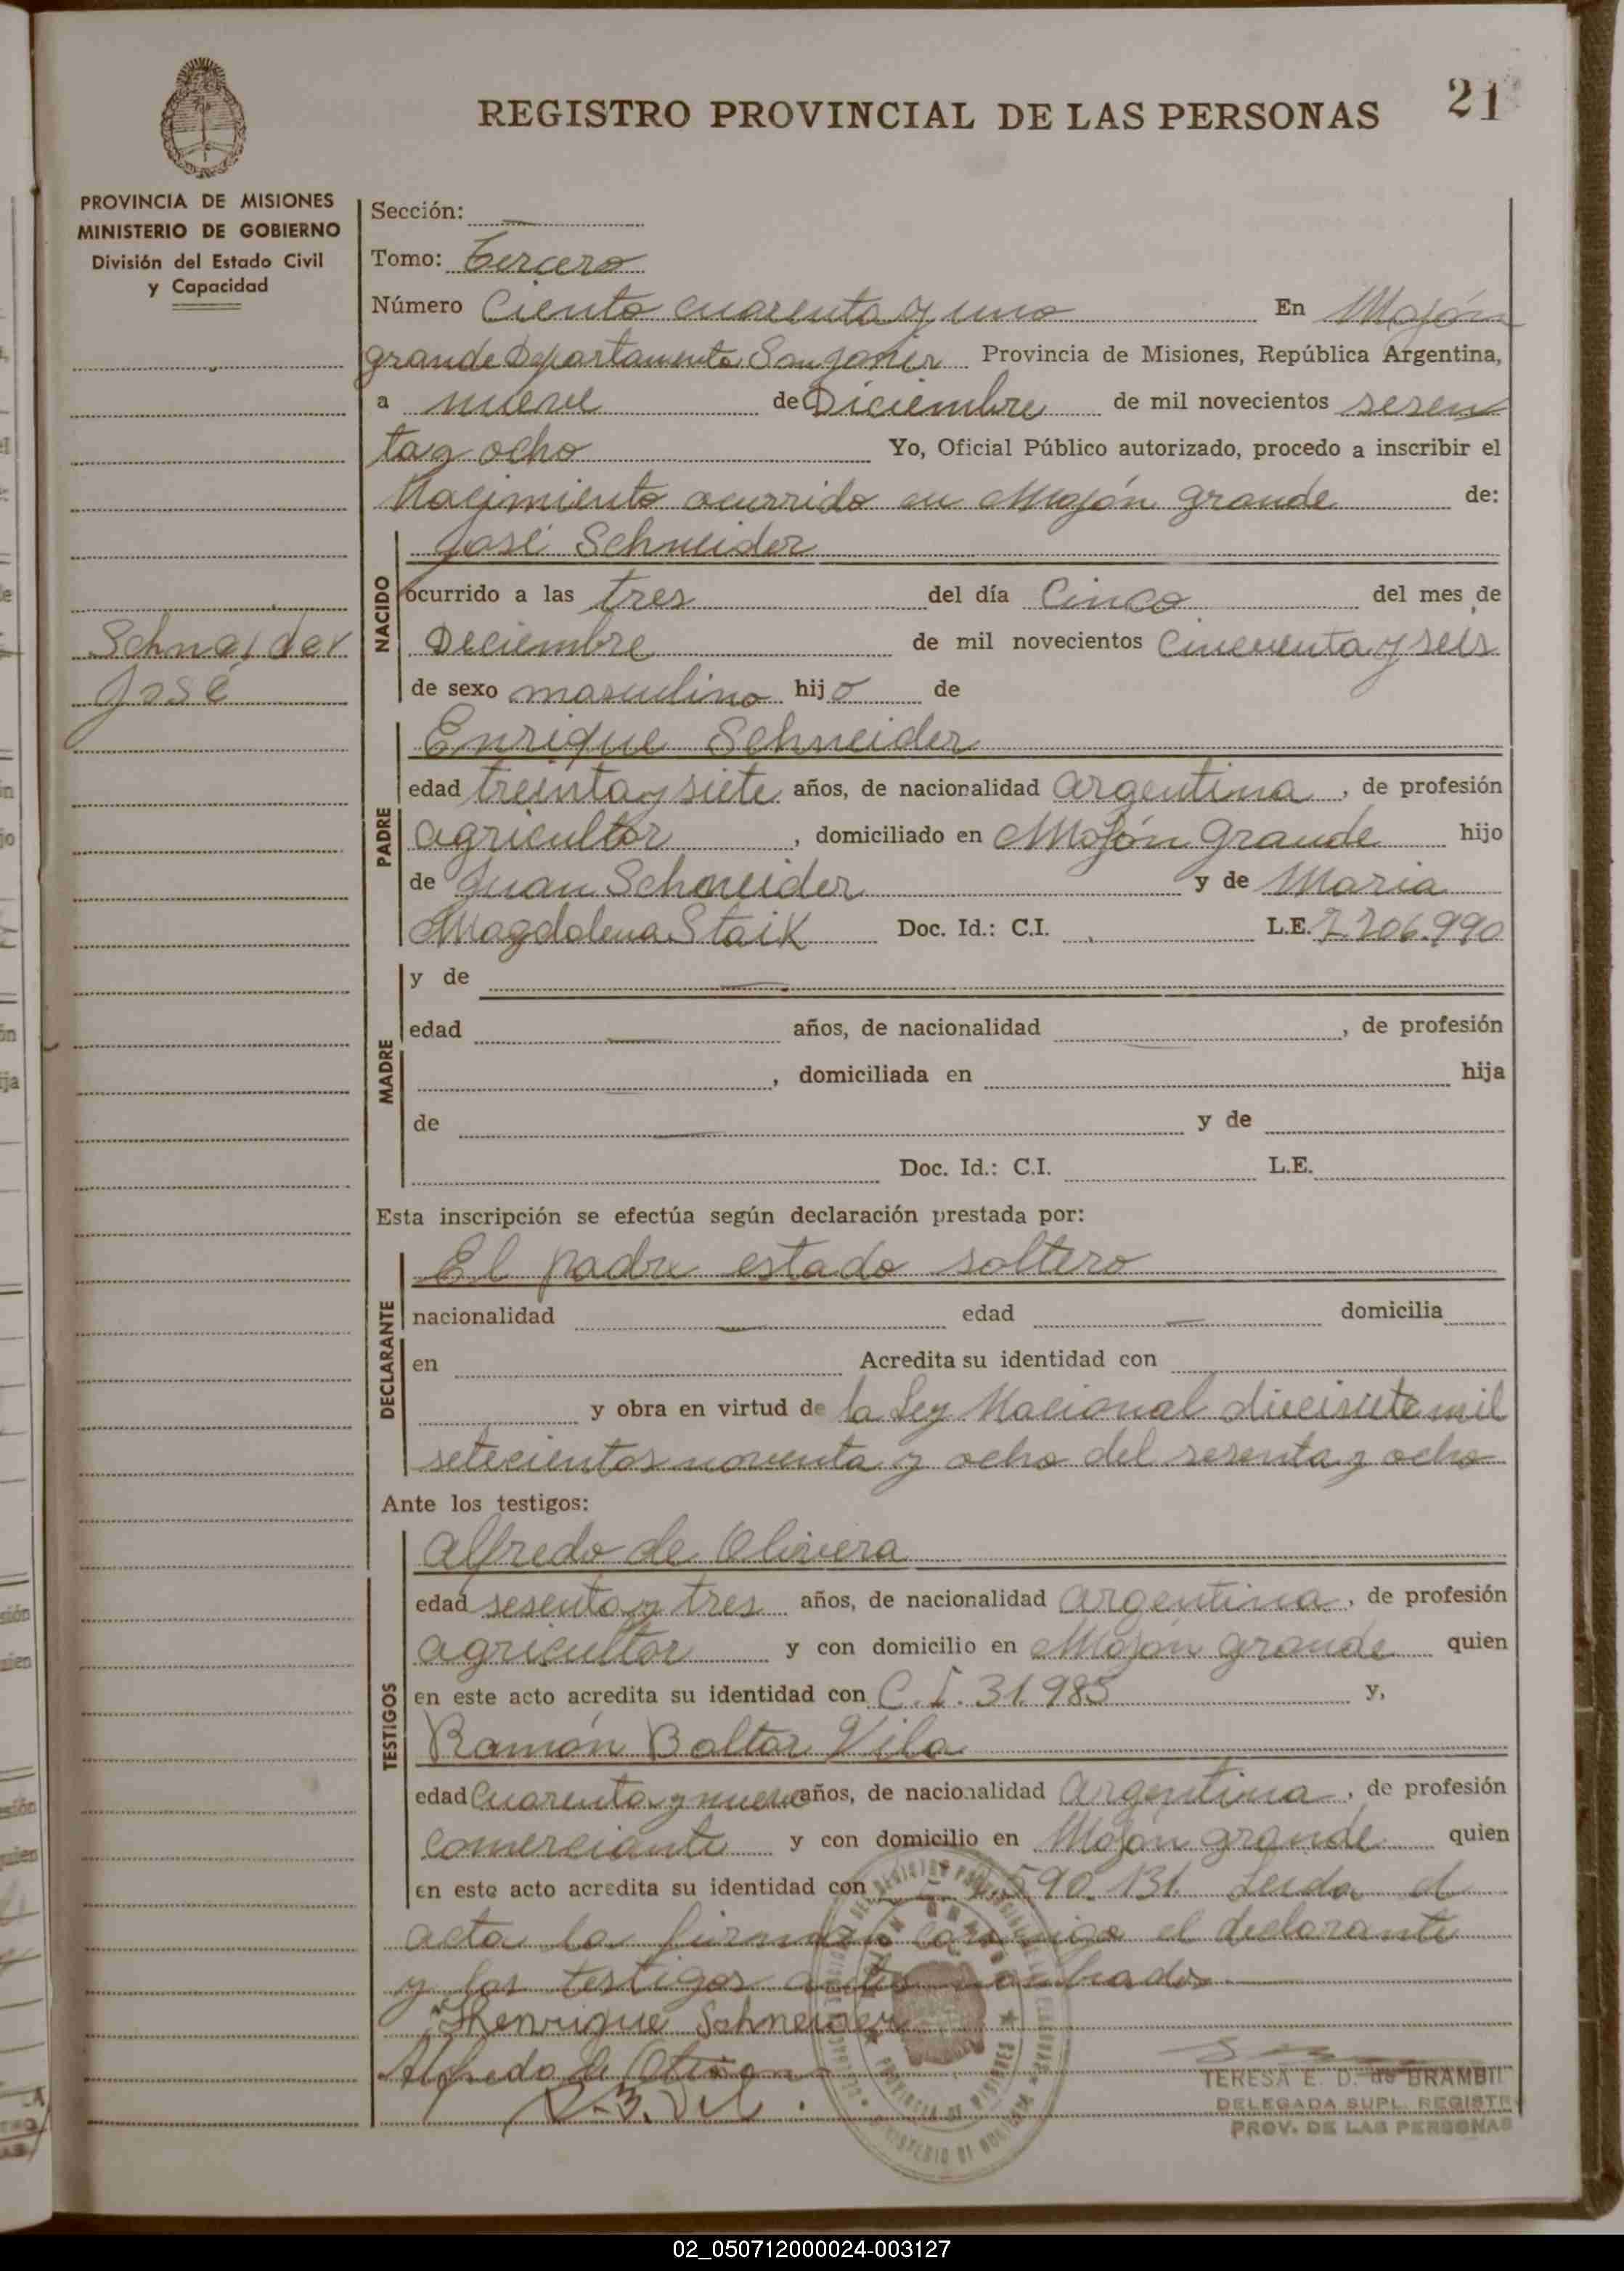 21
REGISTRO PROVINCIAL DE LAS PERSONAS
PROVINCIA DE MISIONES
MINISTERIO DE GOBIERNO
División del Estado Civil
y Capacidad
Schneider
José
Sección: —
Tomo: Tercero
Número Ciento cuarenta y uno En Mojón
grande Departamento San Javier Provincia de Misiones, República Argentina,
a nueve de Diciembre de mil novecientos sesen
ta y ocho Yo, Oficial Público autorizado, procedo a inscribir el
Nacimiento ocurrido en Mojón grande de:
NACIDO
José Schneider
ocurrido a las tres del día Cinco del mes de
Diciembre de mil novecientos cincuenta y seis
de sexo masculino hijo de
PADRE
Enrique Schneider
edad treinta y siete años, de nacionalidad argentina, de profesión
agricultor, domiciliado en Mojón grande hijo
de Juan Schneider y de Maria
Magdalena Staik Doc. Id.: C.I. L.E. 7.706.990
MADRE
y de —
edad — años, de nacionalidad —, de profesión
—, domiciliada en hija
de — y de
Doc. Id.: C.I. L.E.
Esta inscripción se efectúa según declaración prestada por:
DECLARANTE
El padre estado soltero
nacionalidad — edad — domicilia
en Acredita su identidad con
y obra en virtud de la Ley Nacional diecisiete mil
setecientos noventa y ocho del sesenta y ocho
Ante los testigos:
TESTIGOS
Alfredo de Olivera
edad sesenta y tres años, de nacionalidad argentina, de profesión
agricultor y con domicilio en Mojón grande quien
en este acto acredita su identidad con C.I. 31.985 y,
Ramón Baltar Vila
edad Cuarenta y nueve años, de nacionalidad Argentina, de profesión
comerciante y con domicilio en Mojón grande quien
en este acto acredita su identidad con 590.131. Leida el
acta la firman conmigo el declarante
y los testigos antes nombrados
Henrique Schneider
Alfredo de
TERESA E. D. de BRAMBIL
DELEGADA SUPL. REGISTR
PROV. DE LAS PERSONAS
PROVINCIA DE MISIONES
02_050712000024-003127